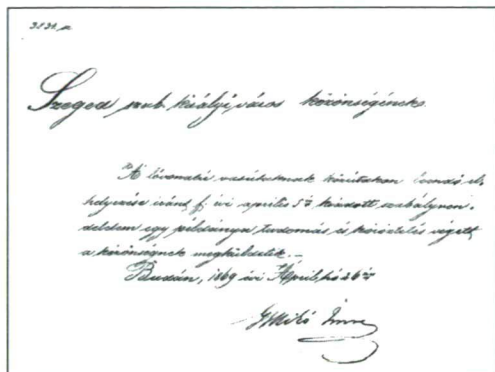 Szeged szab. királyi város közönségének.
A lóvonatú vasutaknak közutakon leendő el-
helyezése iránt f. évi april 5én kiadott szabályren-
deletem egy példánya tudomás és közzététel végett
a közönségnek megküldetik. –
Budán, 1869 évi Április hó 26án
Gr Mikó Imre